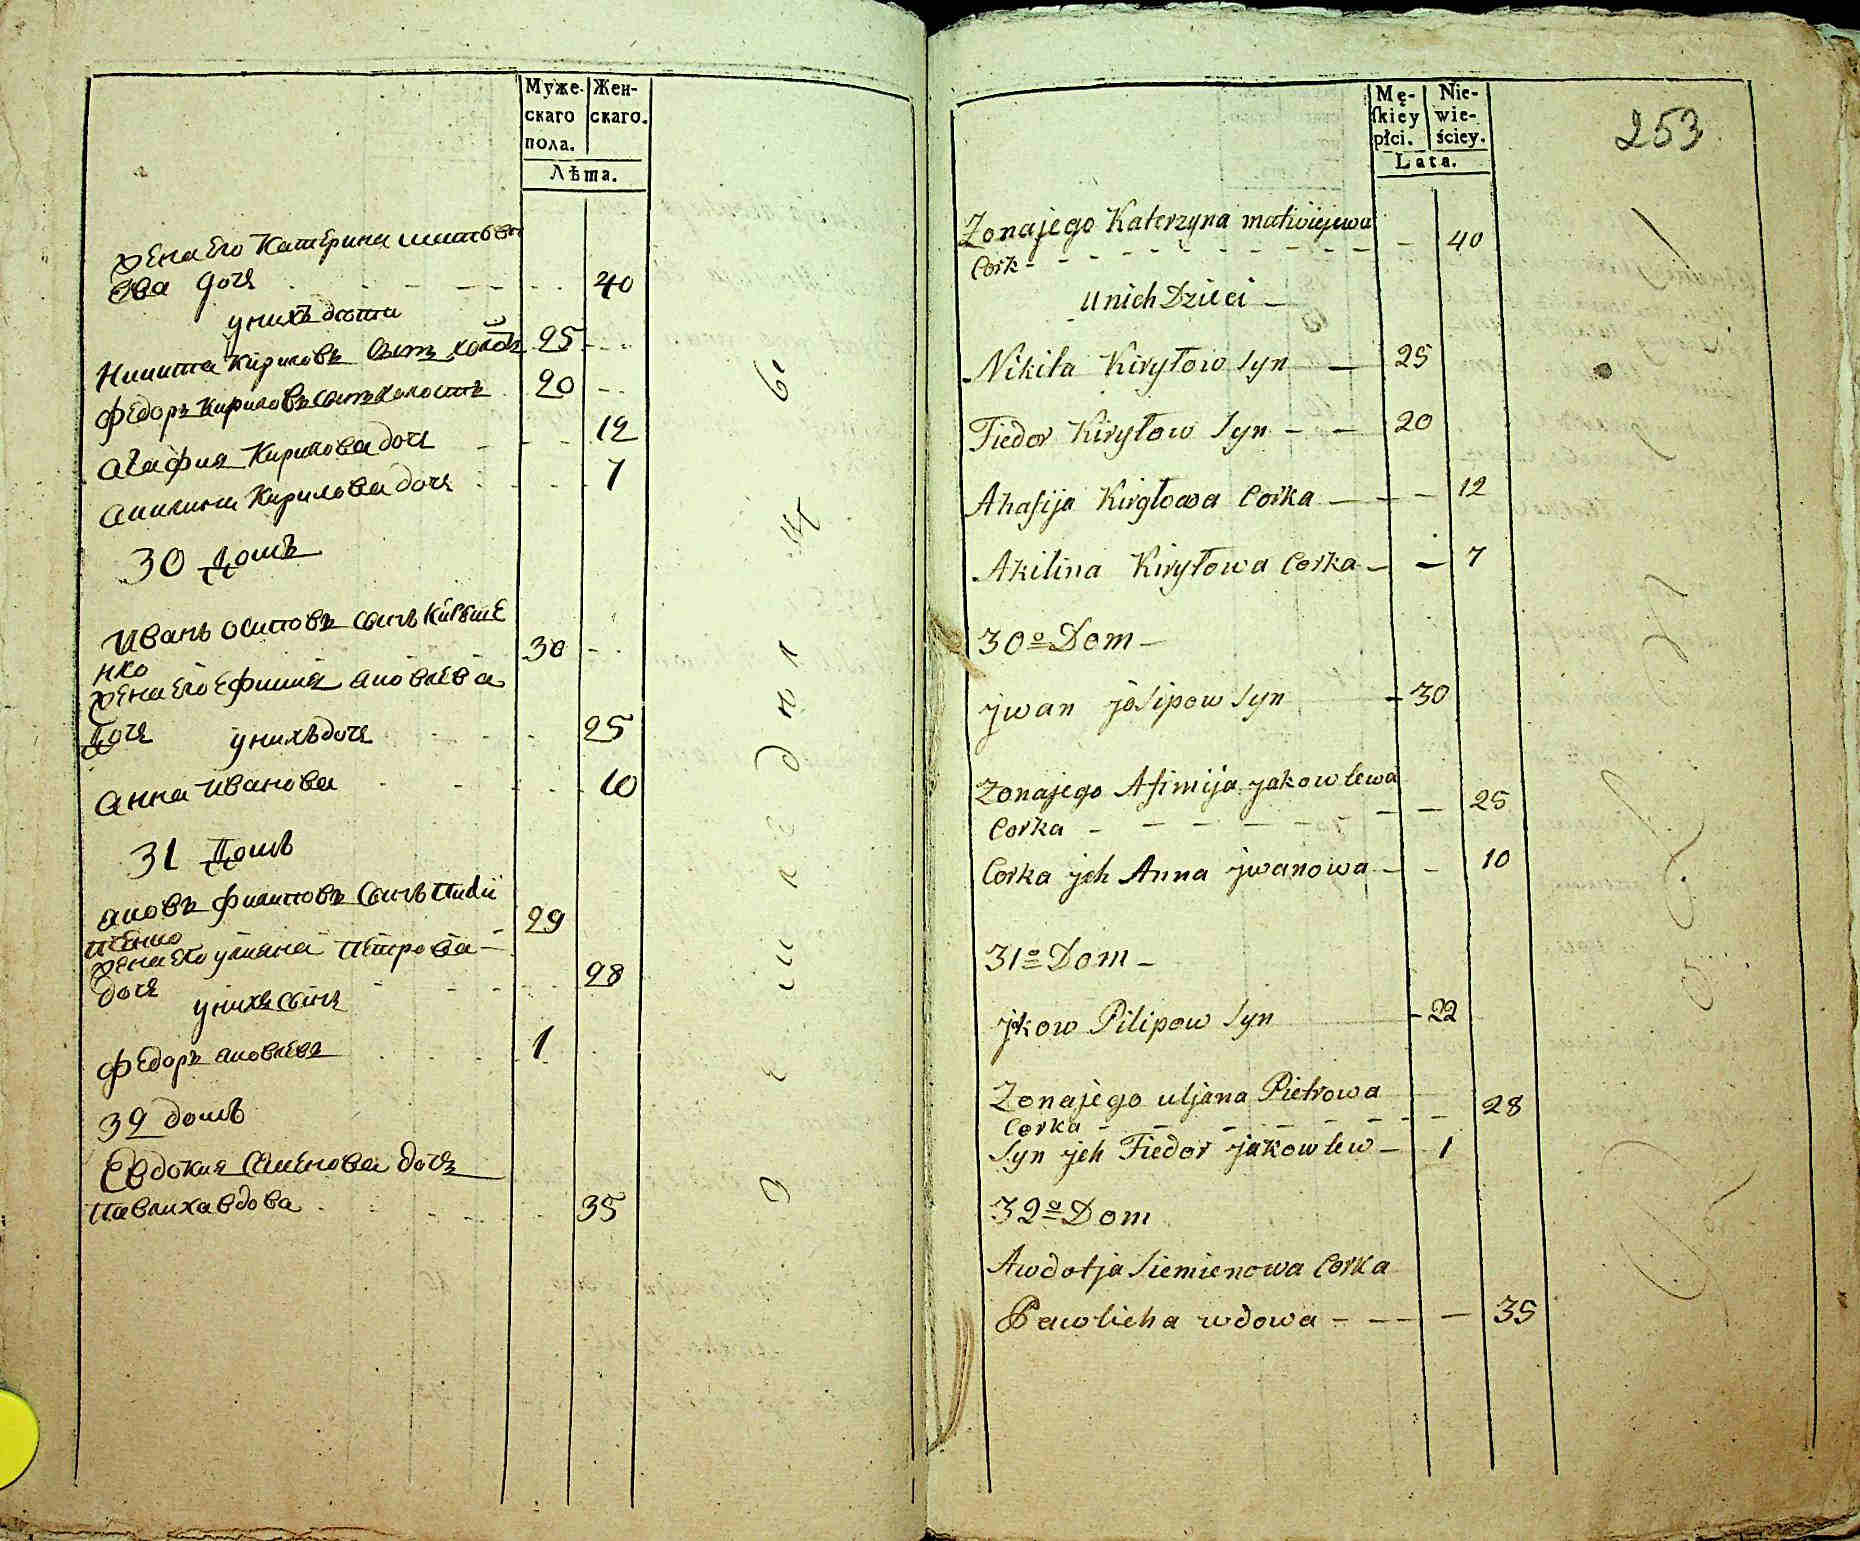 Муже-
скаго
пола.
Жен-
скаго.
Лѣта.
жена его Катерина матве
ева дочь 40
у нихъ дети
Никита Кириловъ сынъ холостъ 25
Федоръ Кириловъ сынъ холостъ 20
Агафия Кирилова дочь 12
Акилина Кирилова дочь 7
30 Домъ
Иванъ Осиповъ сынъ
нко 30
жена его Ефимия Яковлева
Дочь 25
у нихъ дочь
Анна Иванова 10
31 Домъ
Яковъ Филиповъ сынъ 29
жена его Уляна Петрова
дочь 28
у нихъ сынъ
Федоръ Яковлевъ 1
32 домъ
Евдокия Семенова дочь
Павлиха вдова 35
Mę-
ſkiey
płci.
Nie-
wie-
ściey.
Lata.
253
Zonajego Katerzyna matwiejewa 40
Cork
unich Dzieci
Nikita Kiryłow Syn 25
Fiedor Kiryłow Syn 20
Ahafija Kirgłowa Corka 12
Akilina Kiryłowa Corka 7
30º Dom
jwan josipow Syn 30
Zonajego Afimija jakowlewa 25
Corka
Corka jch Anna jwanowa 10
31º Dom
jkow Pilipow Syn 22
Zonajego uljana Pietrowa 28
Corka
Syn jch Fiedor jakowlew 1
32º Dom
Awdotja Siemienowa Corka
Pawlicha wdowa 35